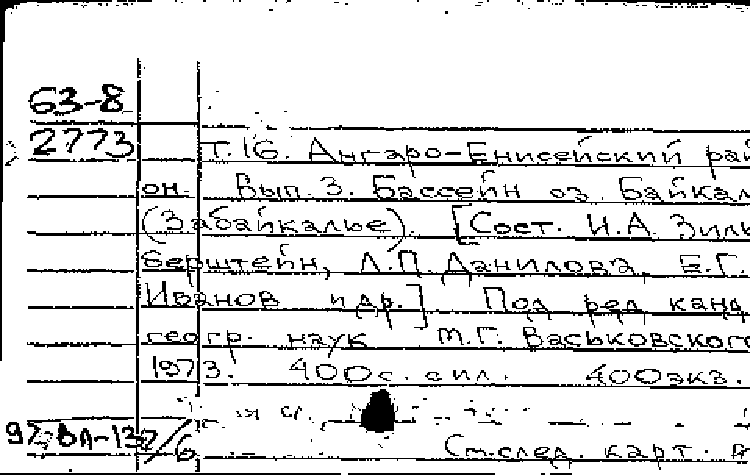 63-8
2773
Т.16. Ангаро-Енисейский рай
он. Вып. 3. Бассейн оз Байкал
(Забайкалье). [Сост. И.А. Зиль
берштейн, Л.П. Данилова, Е.Г.
Иванов и др.] Под ред канд
геогр. наук М.Г. Васьковского
1973. 400с. с ил. 400экз.
См. след. карт.